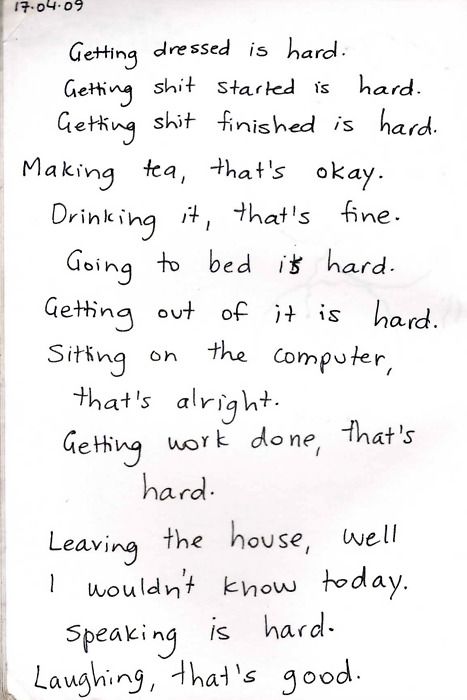 17.04.09
Getting dressed is hard.
Getting shit started is hard.
Getting shit finished is hard.
Making tea, that's okay.
Drinking it, that's fine.
Going to bed is hard.
Getting out of it is hard.
Sitting on the computer,
that's alright.
Getting work done, that's
hard.
Leaving the house, well
I wouldn't know today.
Speaking is hard.
Laughing, that's good.